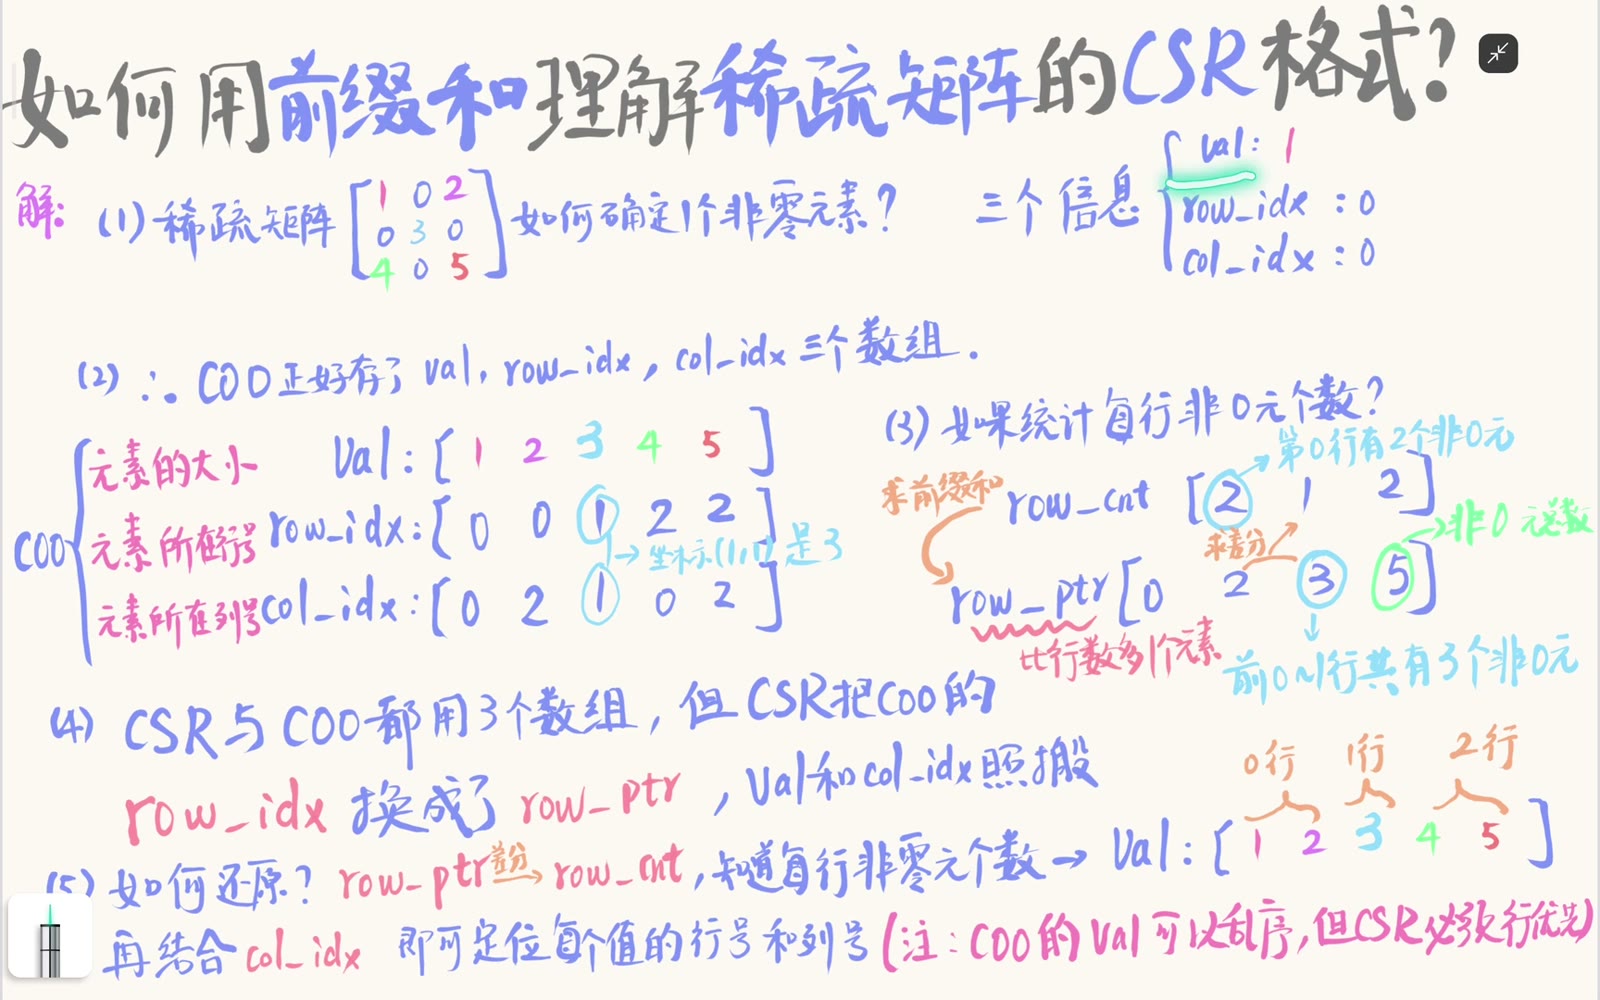 如何用前缀和理解稀疏矩阵的CSR格式?
解: (1) 稀疏矩阵 [1 0 2
0 3 0
4 0 5] 如何确定1个非零元素? 三个信息 { val: 1
row_idx : 0
col_idx : 0
(2) ∴ COO正好存了 val, row_idx, col_idx 三个数组.
COO { 元素的大小 Val: [1 2 3 4 5]
元素所在行号 row_idx: [0 0 1 2 2]
→ 坐标(1,1)是3
元素所在列号 col_idx: [0 2 1 0 2]
(3) 如果统计每行非0元个数?
→ 第0行有2个非0元
求前缀和 row_cnt [2 1 2]
求差分 → 非0元总数
row_ptr [0 2 3 5]
比行数多1个元素
前0~1行共有3个非0元
(4) CSR与COO都用3个数组, 但CSR把COO的
row_idx 换成了 row_ptr, Val和col_idx照搬
0行 1行 2行
(5) 如何还原? row_ptr 差分→ row_cnt, 知道每行非零元个数 → Val: [1 2 3 4 5]
再结合 col_idx 即可定位每个值的行号和列号 (注: COO的Val可以乱序, 但CSR必须行优先)